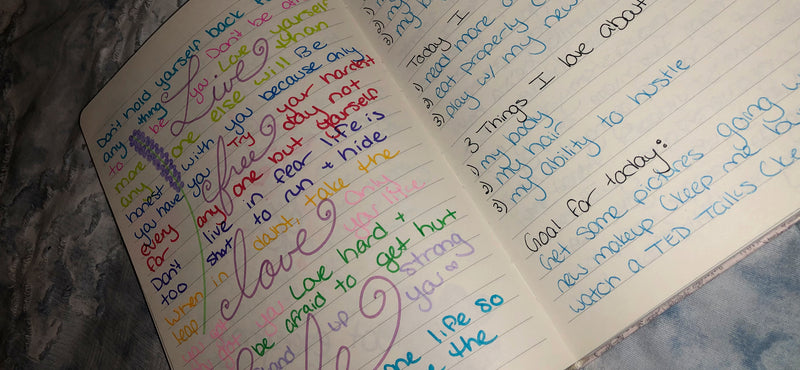 Don't hold yourself back
any thing Don't be
to be you Love yourself
more Live than
any one else will Be
honest with you because only
you have you
every Try your hardest
for free day not
any one but yourself
Don't live in fear life is
too short to run + hide
When in doubt, take the
leap only
love your life
you Love hard +
be afraid to get hurt
stand up strong
you
one life so
the
2) my
3) my b
Today I
1) read more
2) eat properly
3) play w/ my new
3 Things I love about
1) my body
2) my hair
3) my ability to hustle
Goal for today:
Get some pictures going w
new makeup (keep me
watch a TED Talks (